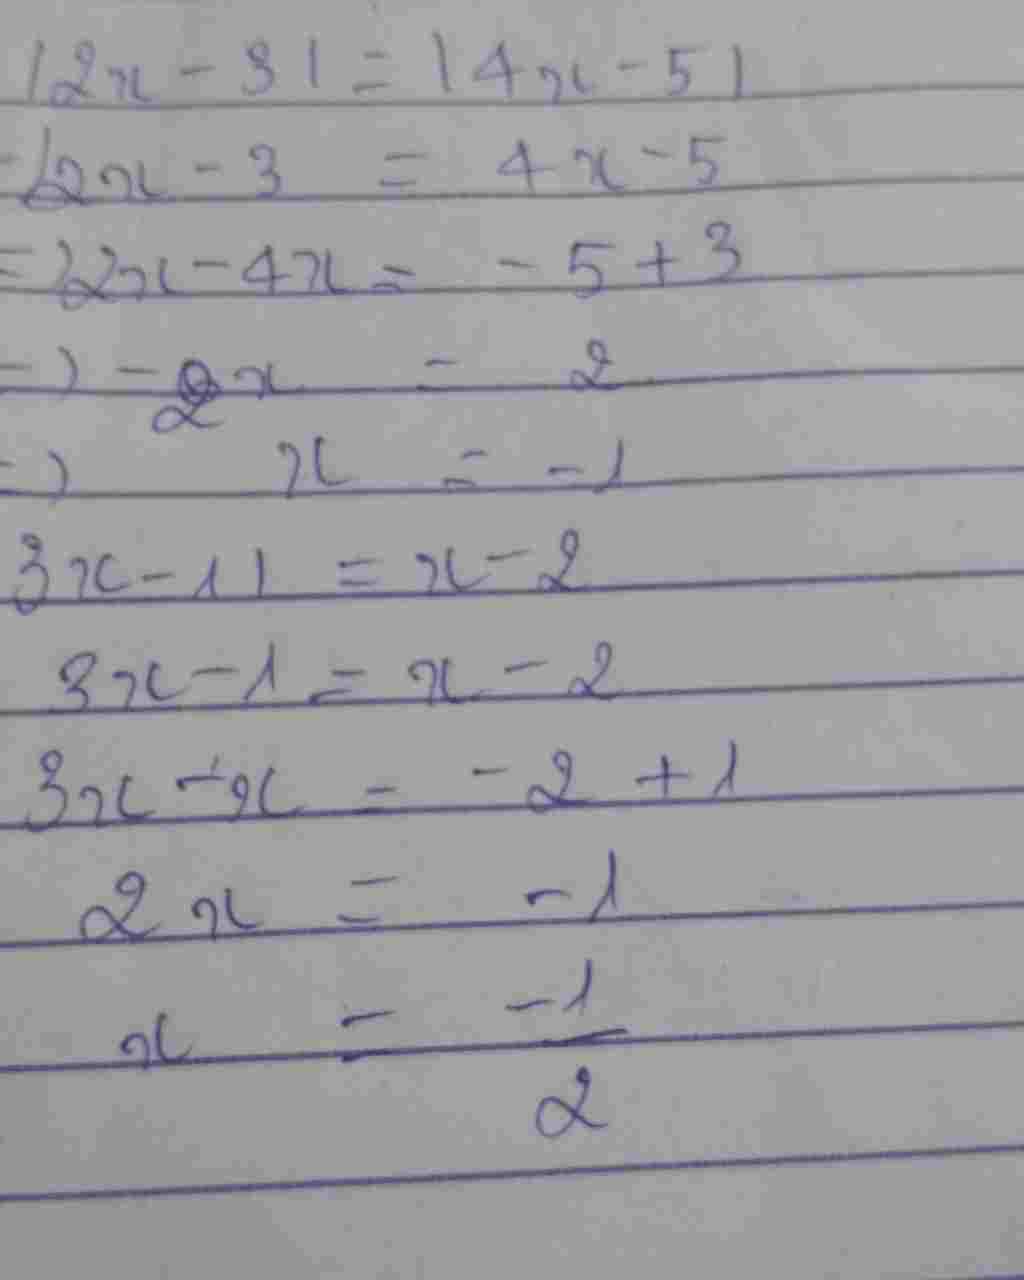 |2x - 3| = |4x - 5|
=) 2x - 3 = 4x - 5
=) 2x - 4x = - 5 + 3
=) - 2x = 2
=) x = -1
3x - 1| = x - 2
3x - 1 = x - 2
3x - x = -2 + 1
2x = -1
x = -1
2